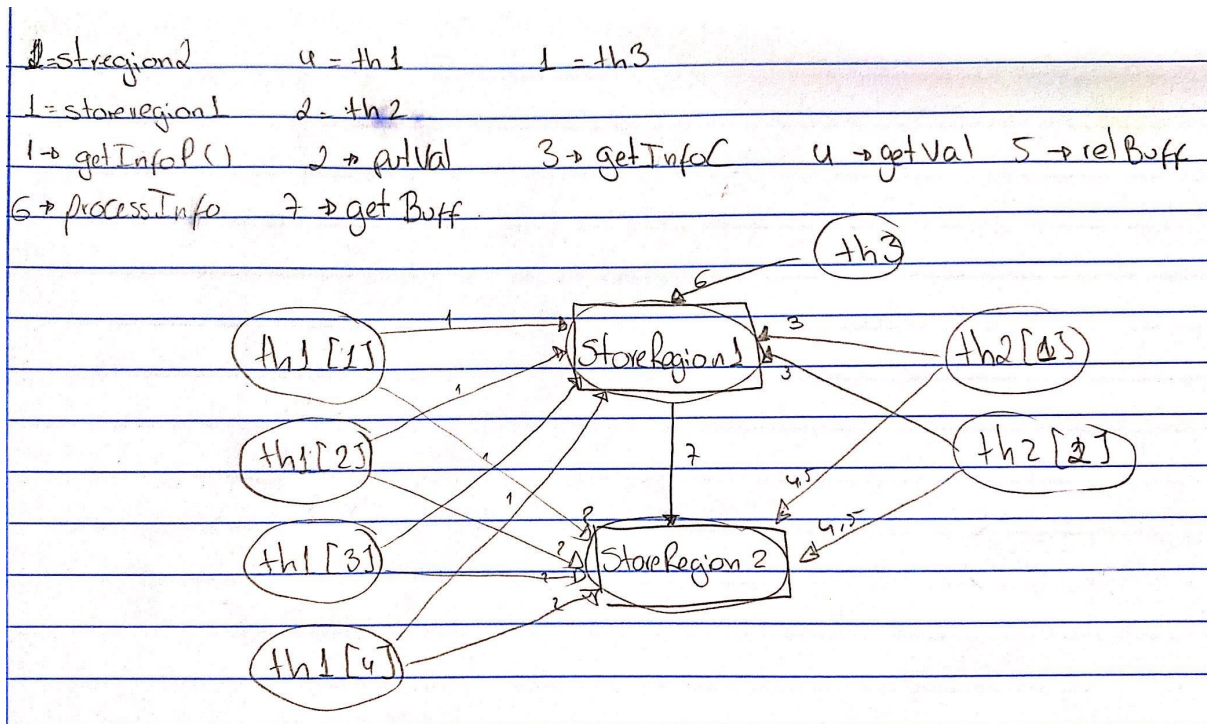 1=stregion2 4 = th1 1 = th3
1=storeregion1 2 = th2
1→ getInfoP() 2 → putVal 3 → getInfoC 4 → getVal 5 → relBuff
6 → processInfo 7 → getBuff
th3
6
1 3
th1 [1] StoreRegion1 th2 [1]
1 3
th1 [2] 7 th2 [2]
1 1 4,5
2 2 4,5
th1 [3] 2 StoreRegion 2
2
th1 [4]